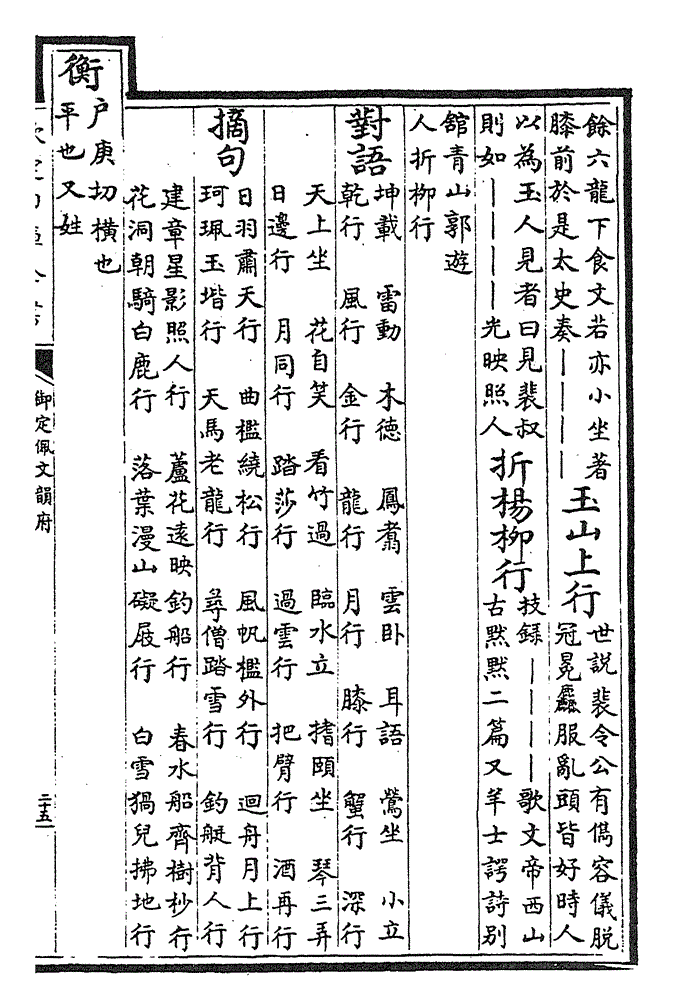 餘六龍下食文若亦小坐著
膝前於是太史奏｜｜｜｜
玉山上行
世說裴令公有儁容儀脫
冠冕麤服亂頭皆好時人
以為玉人見者曰見裴叔
則如｜｜｜｜光映照人
折楊柳行
技録｜｜｜｜歌文帝西山
古黙黙二篇又羊士諤詩别
舘青山郭遊
人折柳行
對語
坤載 雷動 木德 鳳翥 雲卧 耳語 鶯坐 小立
乾行 風行 金行 龍行 月行 膝行 蟹行 深行
天上坐 花自笑 看竹過 臨水立 搘頤坐 琴三弄
日邊行 月同行 踏莎行 過雲行 把臂行 酒再行
摘句
日羽肅天行 曲檻繞松行 風帆檻外行 迴舟月上行
珂珮玉堦行 天馬老龍行 尋僧踏雪行 釣艇背人行
建章星影照人行 蘆花遠映釣船行 春水船齊樹杪行
花洞朝騎白鹿行 落葉漫山礙屐行 白雪猧兒拂地行
衡
户庚切橫也
平也又姓
御定佩文韻府
二十五